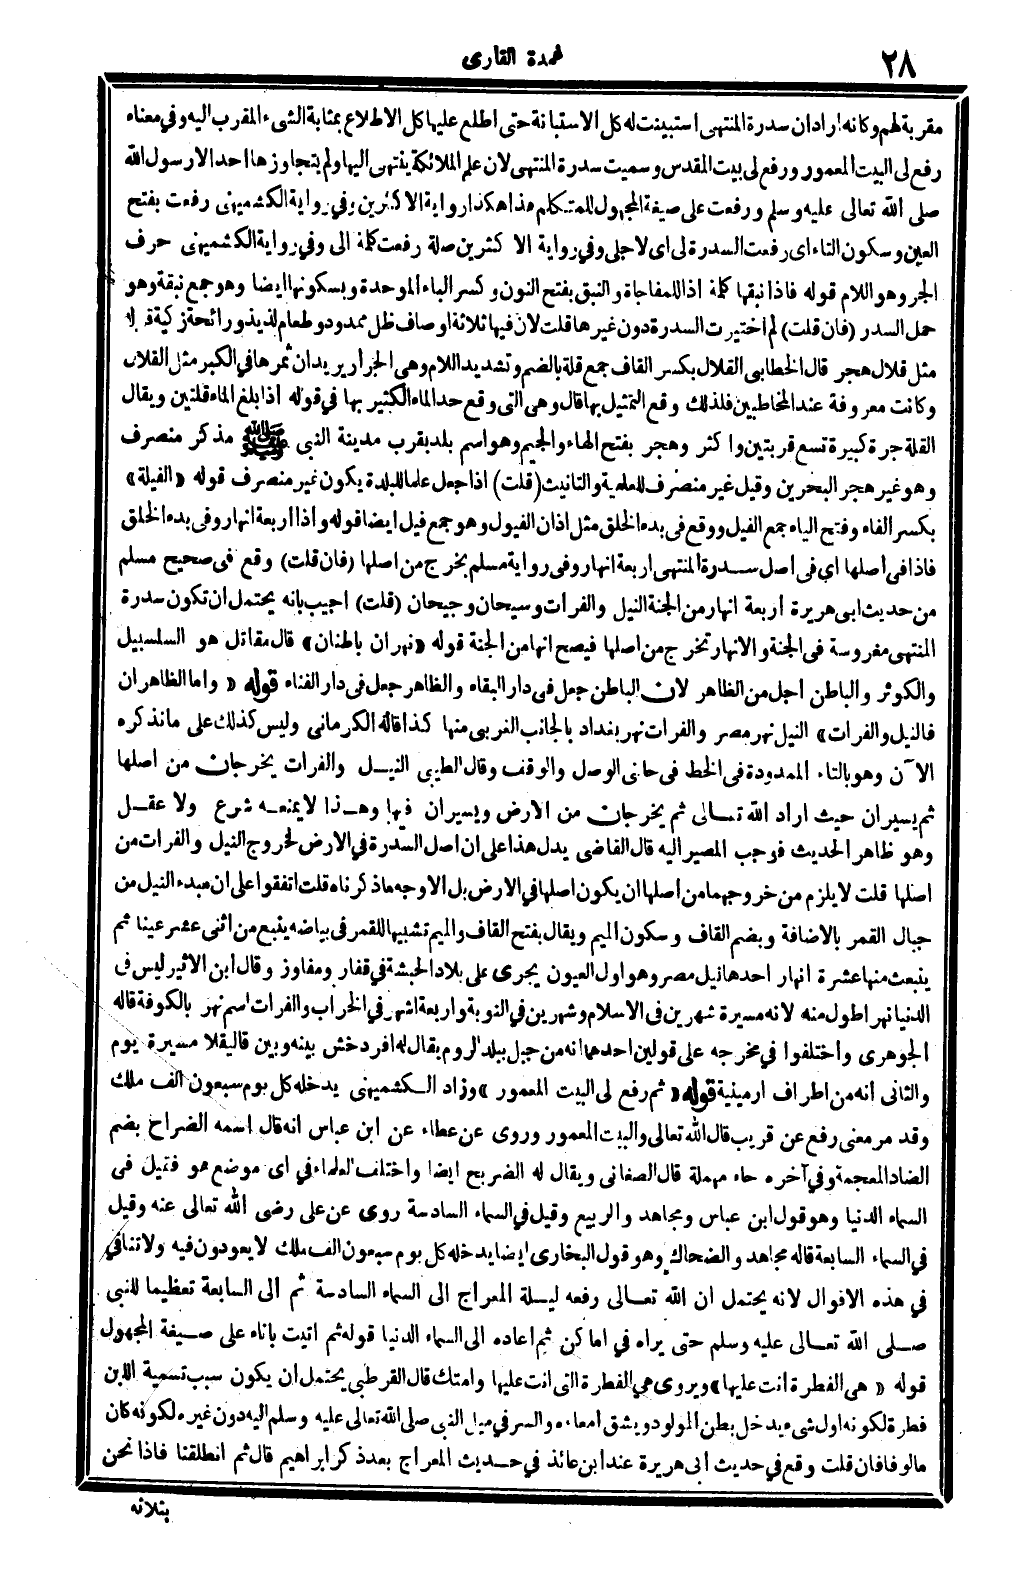 ٢٨
عمدة القارى
مقربة لهم وكانه اراد ان سدرة المنتهى استبينت له كل الاستبانة حتى اطلع عليها كل الاطلاع بمثابة الشىء المقرب اليه وفي معناه
رفع لى البيت المعمور ورفع لى بيت المقدس وسميت سدرة المنتهى لان علم الملائكة ينتهى اليها ولم يتجاوزها احد الا رسول الله
صلى الله تعالى عليه وسلم ورفعت على صيغة المجهول للمتكلم هذا هكذا رواية الاكثرين وفي رواية الكشميهنى رفعت بفتح
العين وسكون التاء اى رفعت السدرة لى اى لاجلى وفي رواية الا كثرين صلة رفعت كلمة الى وفي رواية الكشميهنى حرف
الجر وهو اللام قوله فاذا نبقها كلمة اذا للمفاجاة والنبق بفتح النون وكسر الباء الموحدة وبسكونها ايضا وهو جمع نبقة وهو
حمل السدر (فان قلت) لم اختيرت السدرة دون غيرها قلت لان فيها ثلاثة اوصاف ظل ممدود وطعام لذيذ ورائحة زكية قوله
مثل قلال هجر قال الخطابى القلال بكسر القاف جمع قلة بالضم وتشديد اللام وهى الجرار يريد ان ثمرها في الكبر مثل القلال
وكانت معروفة عند المخاطبين فلذلك وقع التمثيل بها قال وهى التى وقع حد الماء الكثير بها في قوله اذا بلغ الماء قلتين ويقال
القلة جرة كبيرة تسع قربتين واكثر وهجر بفتح الهاء والجيم وهو اسم بلد بقرب مدينة النبى ﷺ مذكر منصرف
وهو غير هجر البحرين وقيل غير منصرف للعلمية والتانيث (قلت) اذا جعل علما للبلدة يكون غير منصرف قوله «الفيلة»
بكسر الفاء وفتح الياء جمع الفيل ووقع فى بدء الخلق مثل اذان الفيول وهو جمع فيل ايضا قوله واذا اربعة انهار وفى بدء الخلق
فاذا فى اصلها اي فى اصل سدرة المنتهى اربعة انهار وفى رواية مسلم يخرج من اصلها (فان قلت) وقع فى صحيح مسلم
من حديث ابى هريرة اربعة انهار من الجنة النيل والفرات وسيحان وجيحان (قلت) اجيب بانه يحتمل ان تكون سدرة
المنتهى مغروسة فى الجنة والانهار تخرج من اصلها فيصح انها من الجنة قوله «نهران باطنان» قال مقاتل هو السلسبيل
والكوثر والباطن اجل من الظاهر لان الباطن جعل فى دار البقاء والظاهر جعل فى دار الفناء قوله «واما الظاهران
فالنيل والفرات» النيل نهر مصر والفرات نهر بغداد بالجانب الغربى منها كذا قاله الكرمانى وليس كذلك على ما نذكره
الآن وهو بالتاء الممدودة فى الخط فى حالى الوصل والوقف وقال الطيبى النيل والفرات يخرجان من اصلها
ثم يسيران حيث اراد الله تعالى ثم يخرجان من الارض ويسيران فيها وهذا لا يمنعه شرع ولا عقل
وهو ظاهر الحديث فوجب المصير اليه قال القاضى يدل هذا على ان اصل السدرة في الارض لخروج النيل والفرات من
اصلها قلت لا يلزم من خروجهما من اصلها ان يكون اصلها في الارض بل الاوجه ما ذكرناه قلت اتفقوا على ان مبدء النيل من
جبال القمر بالاضافة وبضم القاف وسكون الميم ويقال بفتح القاف والميم تشبيها للقمر فى بياضه ينبع من اثنى عشر عينا ثم
ينبعث منها عشرة انهار احدها نيل مصر وهو اول العيون يجرى على بلاد الحبشة في قفار ومفاوز وقال ابن الاثير ليس فى
الدنيا نهر اطول منه لانه مسيرة شهرين فى الاسلام وشهرين في النوبة واربعة اشهر في الخراب والفرات اسم نهر بالكوفة قاله
الجوهرى واختلفوا في مخرجه على قولين احدهما انه من جبل ببلد الروم يقال له افردخش بينه وبين قاليقلا مسيرة يوم
والثانى انه من اطراف ارمينية قوله «ثم رفع لى البيت المعمور» وزاد الكشميهنى يدخله كل يوم سبعون الف ملك
وقد مر معنى رفع عن قريب قال الله تعالى والبيت المعمور وروى عن عطاء عن ابن عباس انه قال اسمه الضراح بضم
الضاد المعجمة وفي آخره حاء مهملة قال الصغانى ويقال له الضريح ايضا واختلف العلماء في اى موضع هو فقيل فى
السماء الدنيا وهو قول ابن عباس ومجاهد والربيع وقيل في السماء السادسة روى عن على رضى الله تعالى عنه وقيل
في السماء السابعة قاله مجاهد والضحاك وهو قول البخارى ايضا يدخله كل يوم سبعون الف ملك لا يعودون فيه ولا تنافى
في هذه الاقوال لانه يحتمل ان الله تعالى رفعه ليلة المعراج الى السماء السادسة ثم الى السابعة تعظيما للنبى
صلى الله تعالى عليه وسلم حتى يراه في اماكن ثم اعاده الى السماء الدنيا قوله ثم اتيت باناء على صيغة المجهول
قوله «هى الفطرة انت عليها» ويروى هى الفطرة التى انت عليها وامتك قال القرطبى يحتمل ان يكون سبب تسمية اللبن
فطرة لكونه اول شىء يدخل بطن المولود ويشق امعاءه والسر في ميل النبى صلى الله تعالى عليه وسلم اليه دون غيره لكونه كان
مالوفا فان قلت وقع في حديث ابى هريرة عند ابن عائذ في حديث المعراج بعد ذكر ابراهيم قال ثم انطلقنا فاذا نحن
بثلاثة